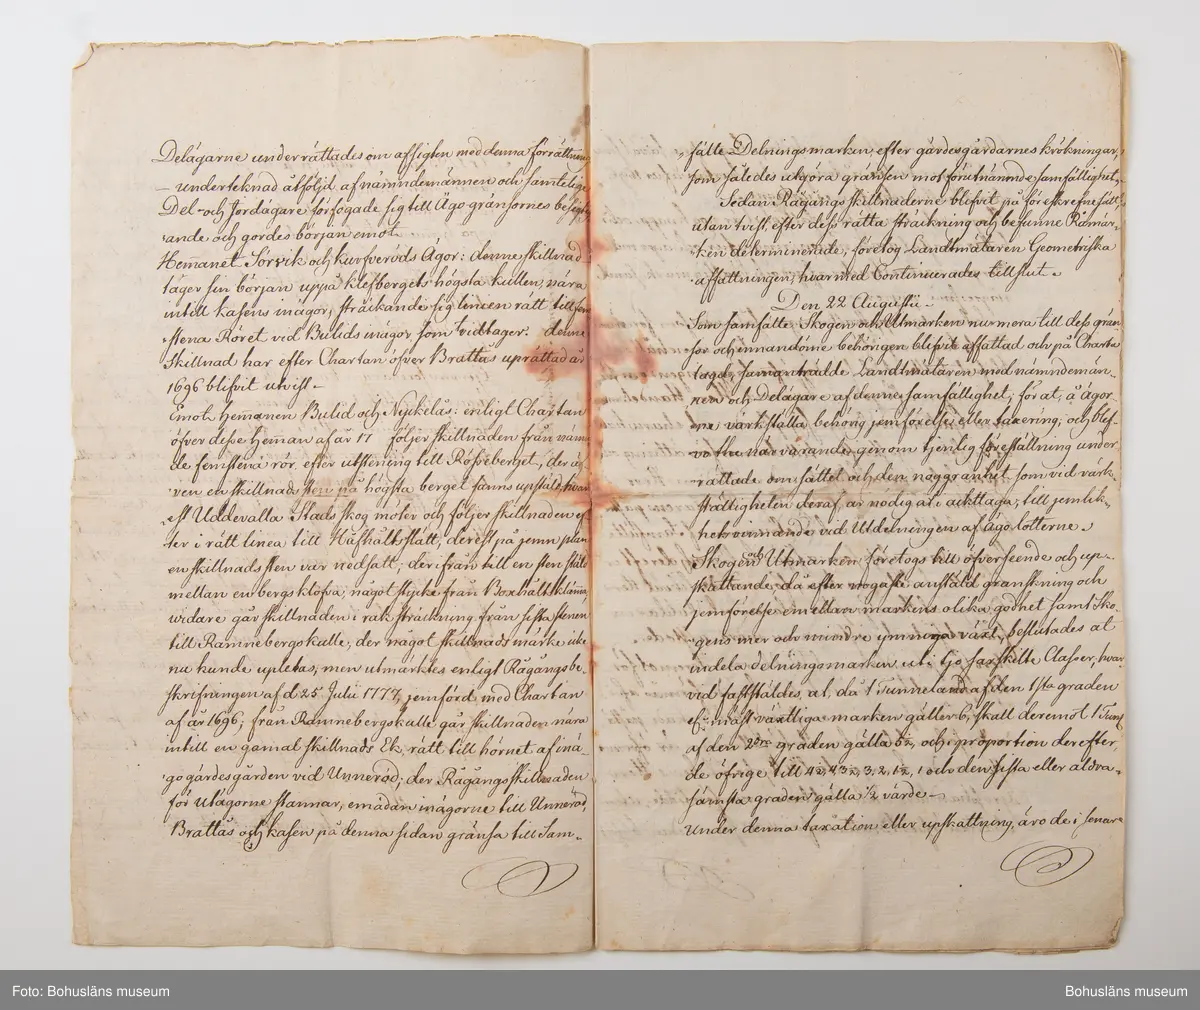 Delägarne underrättades om afsigten med denna förrättning
– underteknad åtföljd af nämndemännen och samtelige
Del- och Jordägare förfogade sig till Ägo gränsornes besigt
ande och gordes början emot
Hemanet Sörvik och kurfveröds Ägor: denne skillnad
tager sin början uppå klefbergets högsta kullen, nära
intill kasens inägor, sträckande sig lineen rätt till fem
stena Röret vid Bulids inägor som vidtager: denne
Skillnad har efter Chartan öfver Brattås uprättad år
1696 blifvit utvist –
Emot hemanen Bulid och Nyckelås: enligt Chartan
öfver desse heman af år 17 följer skillnaden från näm
de femstena rör, efter utstening till Rösseberget, der äf
ven en skillnads sten på högsta berget fanns upstäld, hvar
est Uddevalla Stads skog möter och följer skillnaden ef
ter i rätt linea till Hafhålt slätt, derest på jemn plan
en skillnads sten var nedsatt; der ifrån till en sten stäld
mellan en bergsklöfva, något stycke från Boxhålt klämma
widare går skillnaden i rak sträckning från sista stenen
till Ramnebergskulle, der något skillnads märke icke
na kunde upletas, men utmärktes enligt Rågångs be-
skrifningen af d 25 Julii 1777, jemförd med Chartan
af år 1696; från Ramnebergskulle går skillnaden nära
intill en gamal skillnads Ek, rätt till hörnet af inä
go gärdesgården vid Unneröd; der Rågångs skillnaden
för utägorne stannar, emädan inägorne till Unneröd,
Brattås och kasen på denna sidan gränsa till Sam-
fälte Delningsmarken, efter gärdesgårdarnes krökningar,
som således utgöra gränsen mot förutnämnde samfällighet.
Sedan Rågångsskillnaderne blifvit på föreskrefne sätt
utan tvist, efter dess rätta sträckning och befunne Råmär-
ken determinerade, företog Landtmätaren Geometriska
affattningen, hvarmed Continuerades till slut.
Den 22 Augusti –
Som samfälte Skogen och Utmarken nu mera till dess grän
sor och innandöme behörigen blifvit affattad och på Charta
lagd, samanträdde Landtmätaren med nämndemän-
nen och Delägare af denne samfällighet, för at, å Ägor
ne värkställa behörig jemförelse eller taxering; och blef-
vo the närvarande genom tjenlig föreställning under-
rättade om sättet och den noggranhet som vid värk-
ställigheten deraf är nödig at i ackttaga, till jemlik-
het vinnande vid Utdelningen af ägolotterne.
Skogen och Utmarken företogs till öfverseende och up-
skattande, då efter nogast anstäld granskning och
jemförelse emellan markens olika godhet samt Sko-
gens mer och mindre ymniga växt, beslutades at
indela delningsmarken uti tjo särskilte Classer, hvar
vid fastställdes, at, då 1 Tunneland af den 1sta graden
el. mäst växtliga marken gäller 6, skall deremot 1 Tunl
af den 2dre graden gälla 5½ och i proportion derefter,
de öfrige till 4½, 4, 3½, 3, 2, 1½, 1 och den sista eller aldra-
sämsta graden gälla ½ värde –
Under denna taxation eller upskattning, äro de i senare
Foto: Bohusläns museum
Bohusläns museum